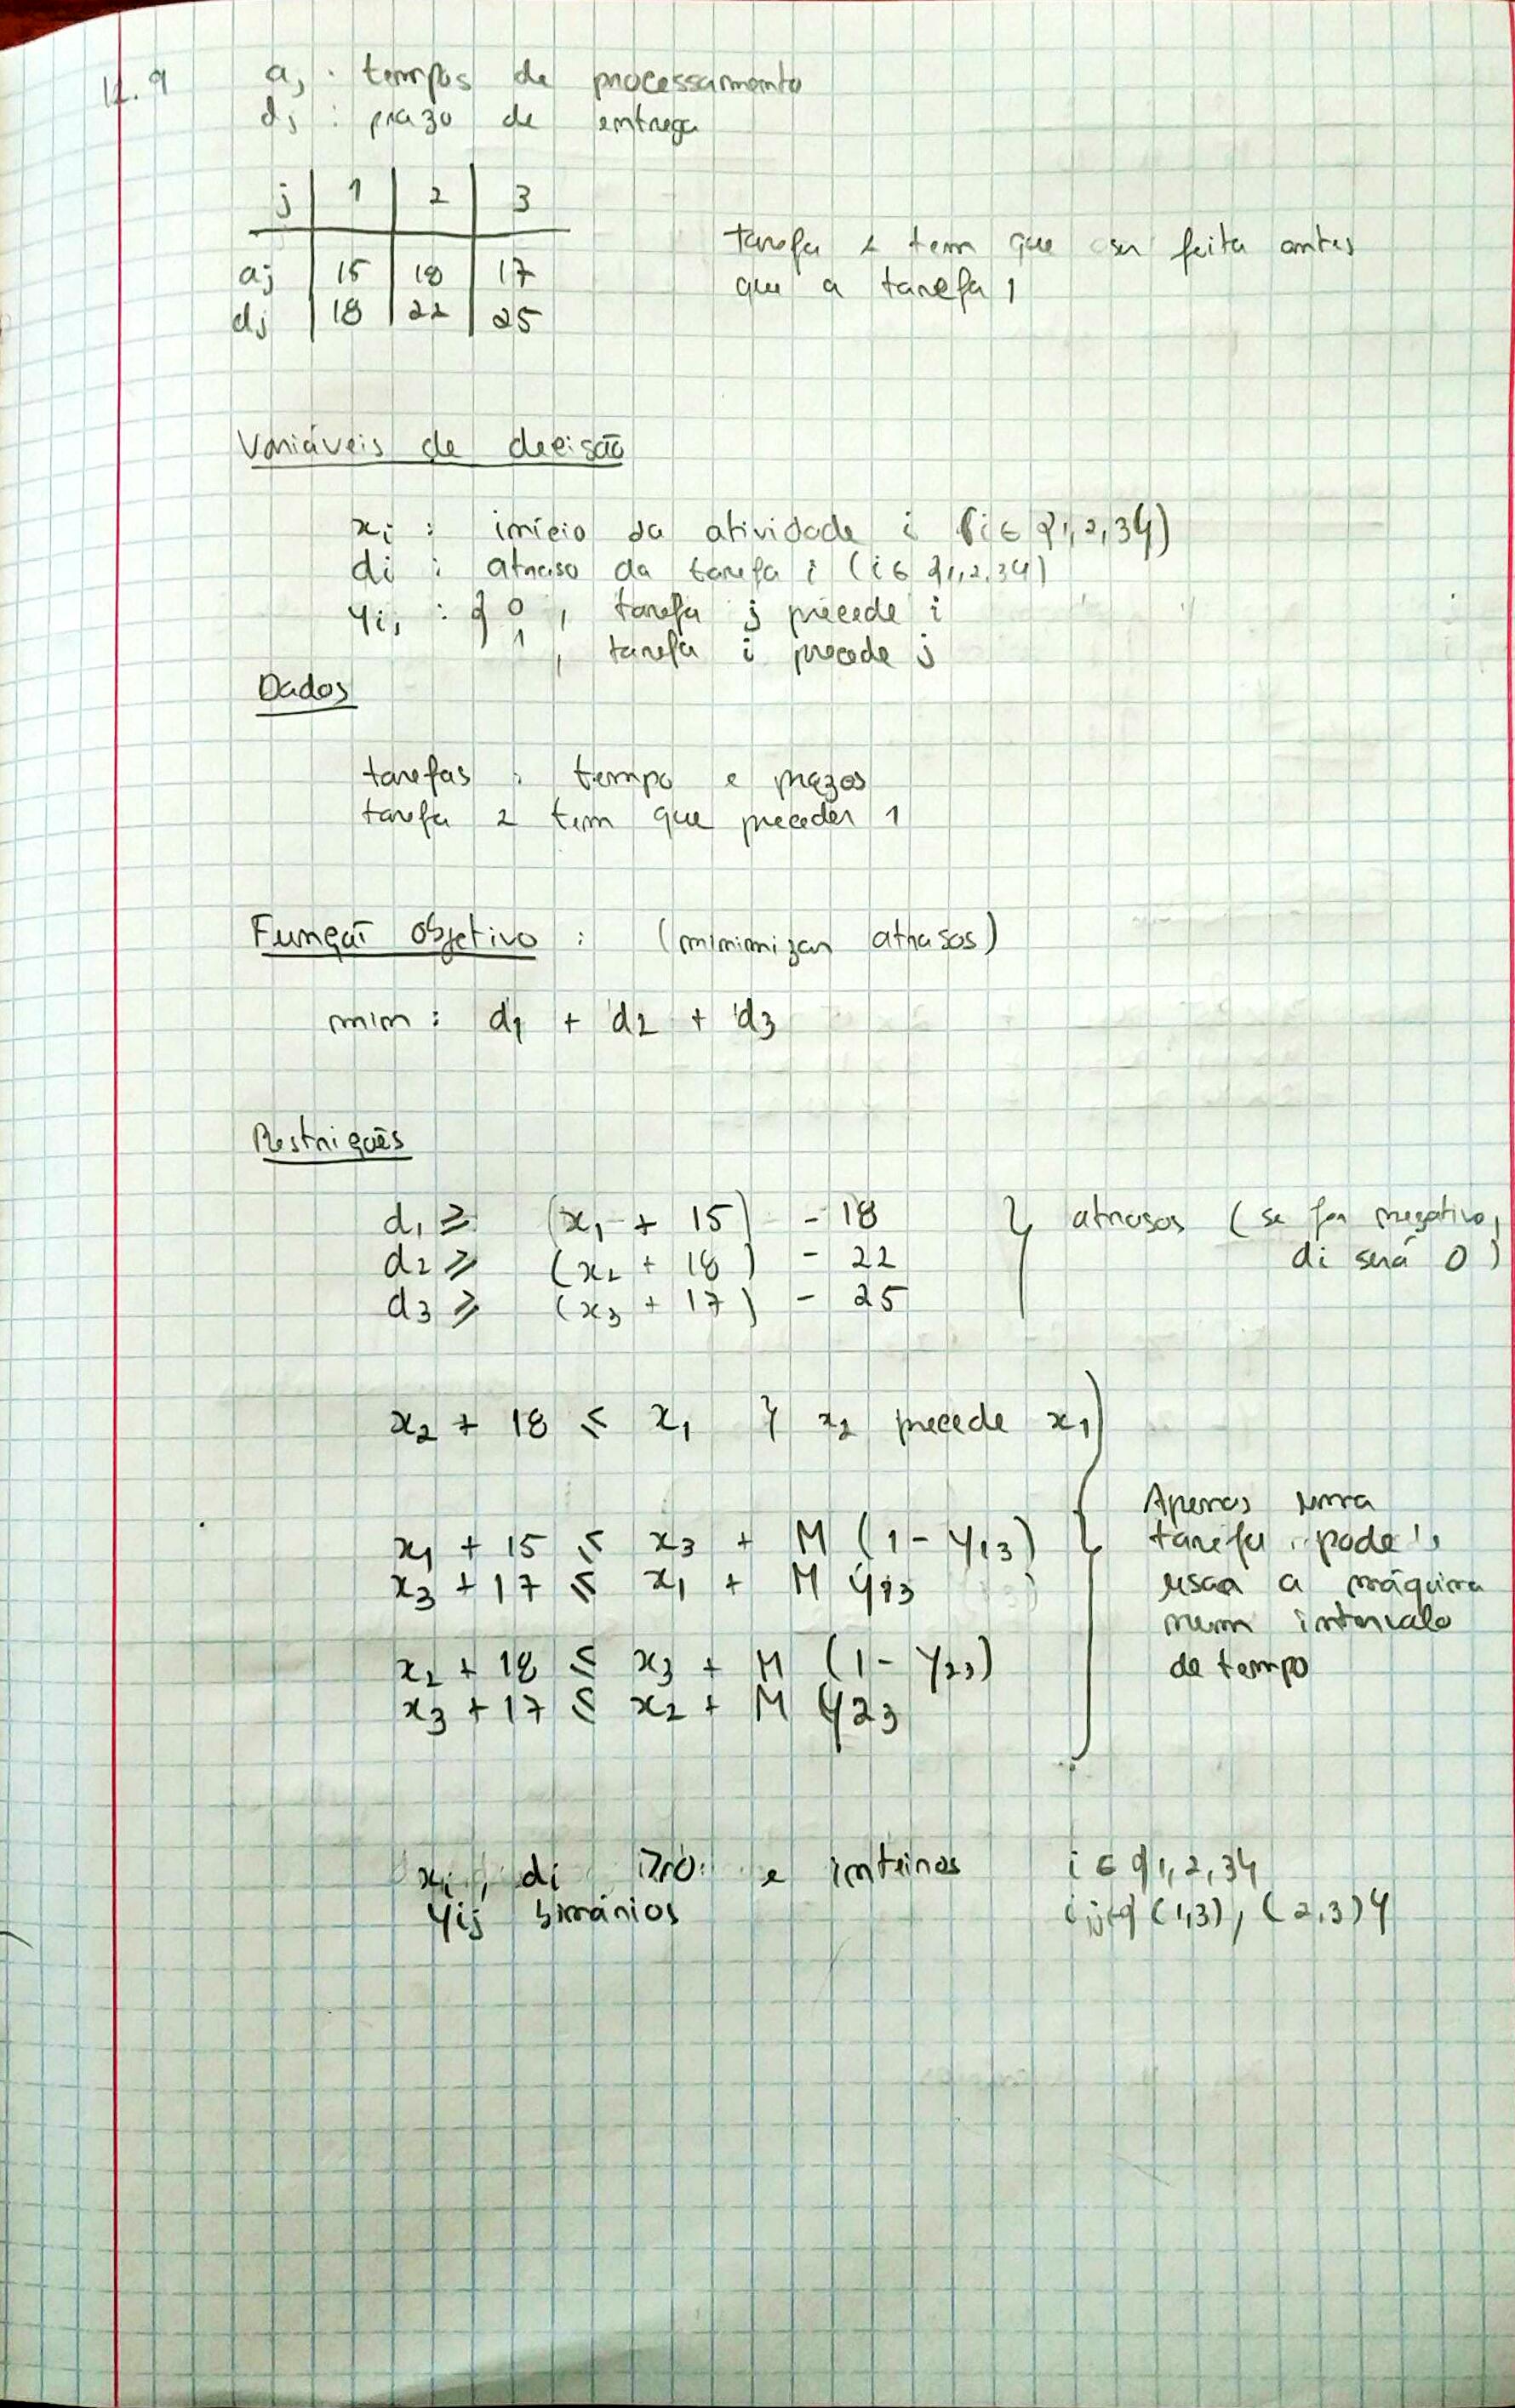 12.9 aj : tempos de processamento
dj : prazo de entrega
j | 1 | 2 | 3
aj | 15 | 18 | 17
dj | 18 | 22 | 25
tarefa 2 tem que ser feita antes
que a tarefa 1
Variáveis de decisão
xi : início da atividade i (i ∈ {1,2,3})
di : atraso da tarefa i (i ∈ {1,2,3})
yij : { 0 , tarefa j precede i
1 , tarefa i precede j
Dados
tarefas : tempo e prazos
tarefa 2 tem que preceder 1
Função objetivo : (minimizar atrasos)
min : d1 + d2 + d3
Restrições
d1 ≥ (x1 + 15) - 18
d2 ≥ (x2 + 18) - 22
d3 ≥ (x3 + 17) - 25
} atrasos (se for negativo,
di será 0)
x2 + 18 ≤ x1 } x2 precede x1
x1 + 15 ≤ x3 + M (1 - y13)
x3 + 17 ≤ x1 + M y13
x2 + 18 ≤ x3 + M (1 - y23)
x3 + 17 ≤ x2 + M y23
Apenas uma
tarefa pode
usar a máquina
num intervalo
de tempo
xi, di ≥ 0 e inteiros i ∈ {1,2,3}
yij binários i,j ∈ {(1,3), (2,3)}